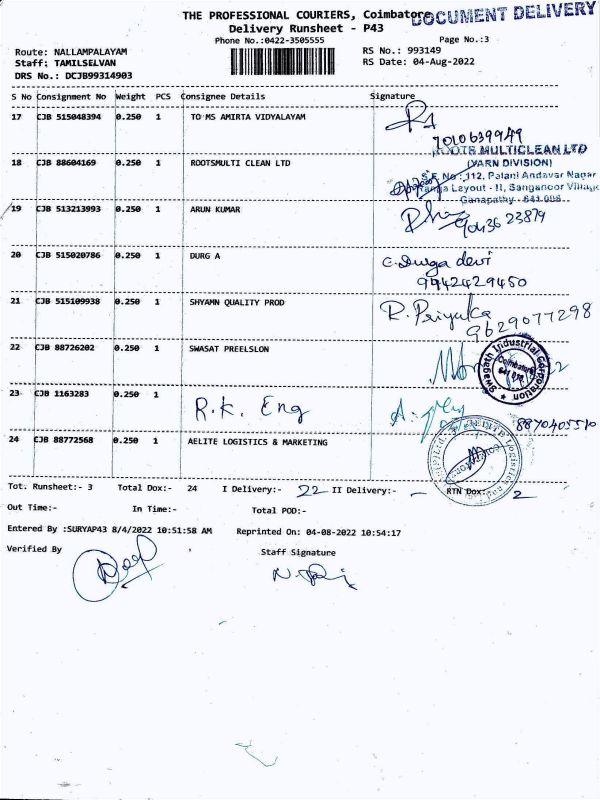 THE PROFESSIONAL COURIERS, Coimbatore
DOCUMENT DELIVERY
Delivery Runsheet - P43
Phone No.:0422-3505555
Page No.:3
Route: NALLAMPALAYAM
RS No.: 993149
Staff: TAMILSELVAN
RS Date: 04-Aug-2022
DRS No.: DCJB99314903
S No Consignment No Weight PCS Consignee Details Signature
17 CJB 515048394 0.250 1 TO MS AMIRTA VIDYALAYAM
7010639949
ROOTS MULTICLEAN LTD
(YARN DIVISION)
18 CJB 88604169 0.250 1 ROOTSMULTI CLEAN LTD
S.F. No : 112, Palani Andavar Nagar
Layout - II, Sanganoor Village
Ganapathy - 641 006
19 CJB 513213993 0.250 1 ARUN KUMAR
23879
20 CJB 515020786 0.250 1 DURG A
C. Durga devi
9942429450
21 CJB 515109938 0.250 1 SHYAMN QUALITY PROD
R. Priyanka
9629077298
22 CJB 88726202 0.250 1 SWASAT PREELSLON
Swagath Industrial Corporation
Coimbatore
23 CJB 1163283 0.250 1 R.K. Eng
8870405510
24 CJB 88772568 0.250 1 AELITE LOGISTICS & MARKETING
Tot. Runsheet:- 3 Total Dox:- 24 I Delivery:- 22 II Delivery:- - RTN Dox:- 2
Out Time:- In Time:- Total POD:-
Entered By :SURYAP43 8/4/2022 10:51:58 AM Reprinted On: 04-08-2022 10:54:17
Verified By Staff Signature